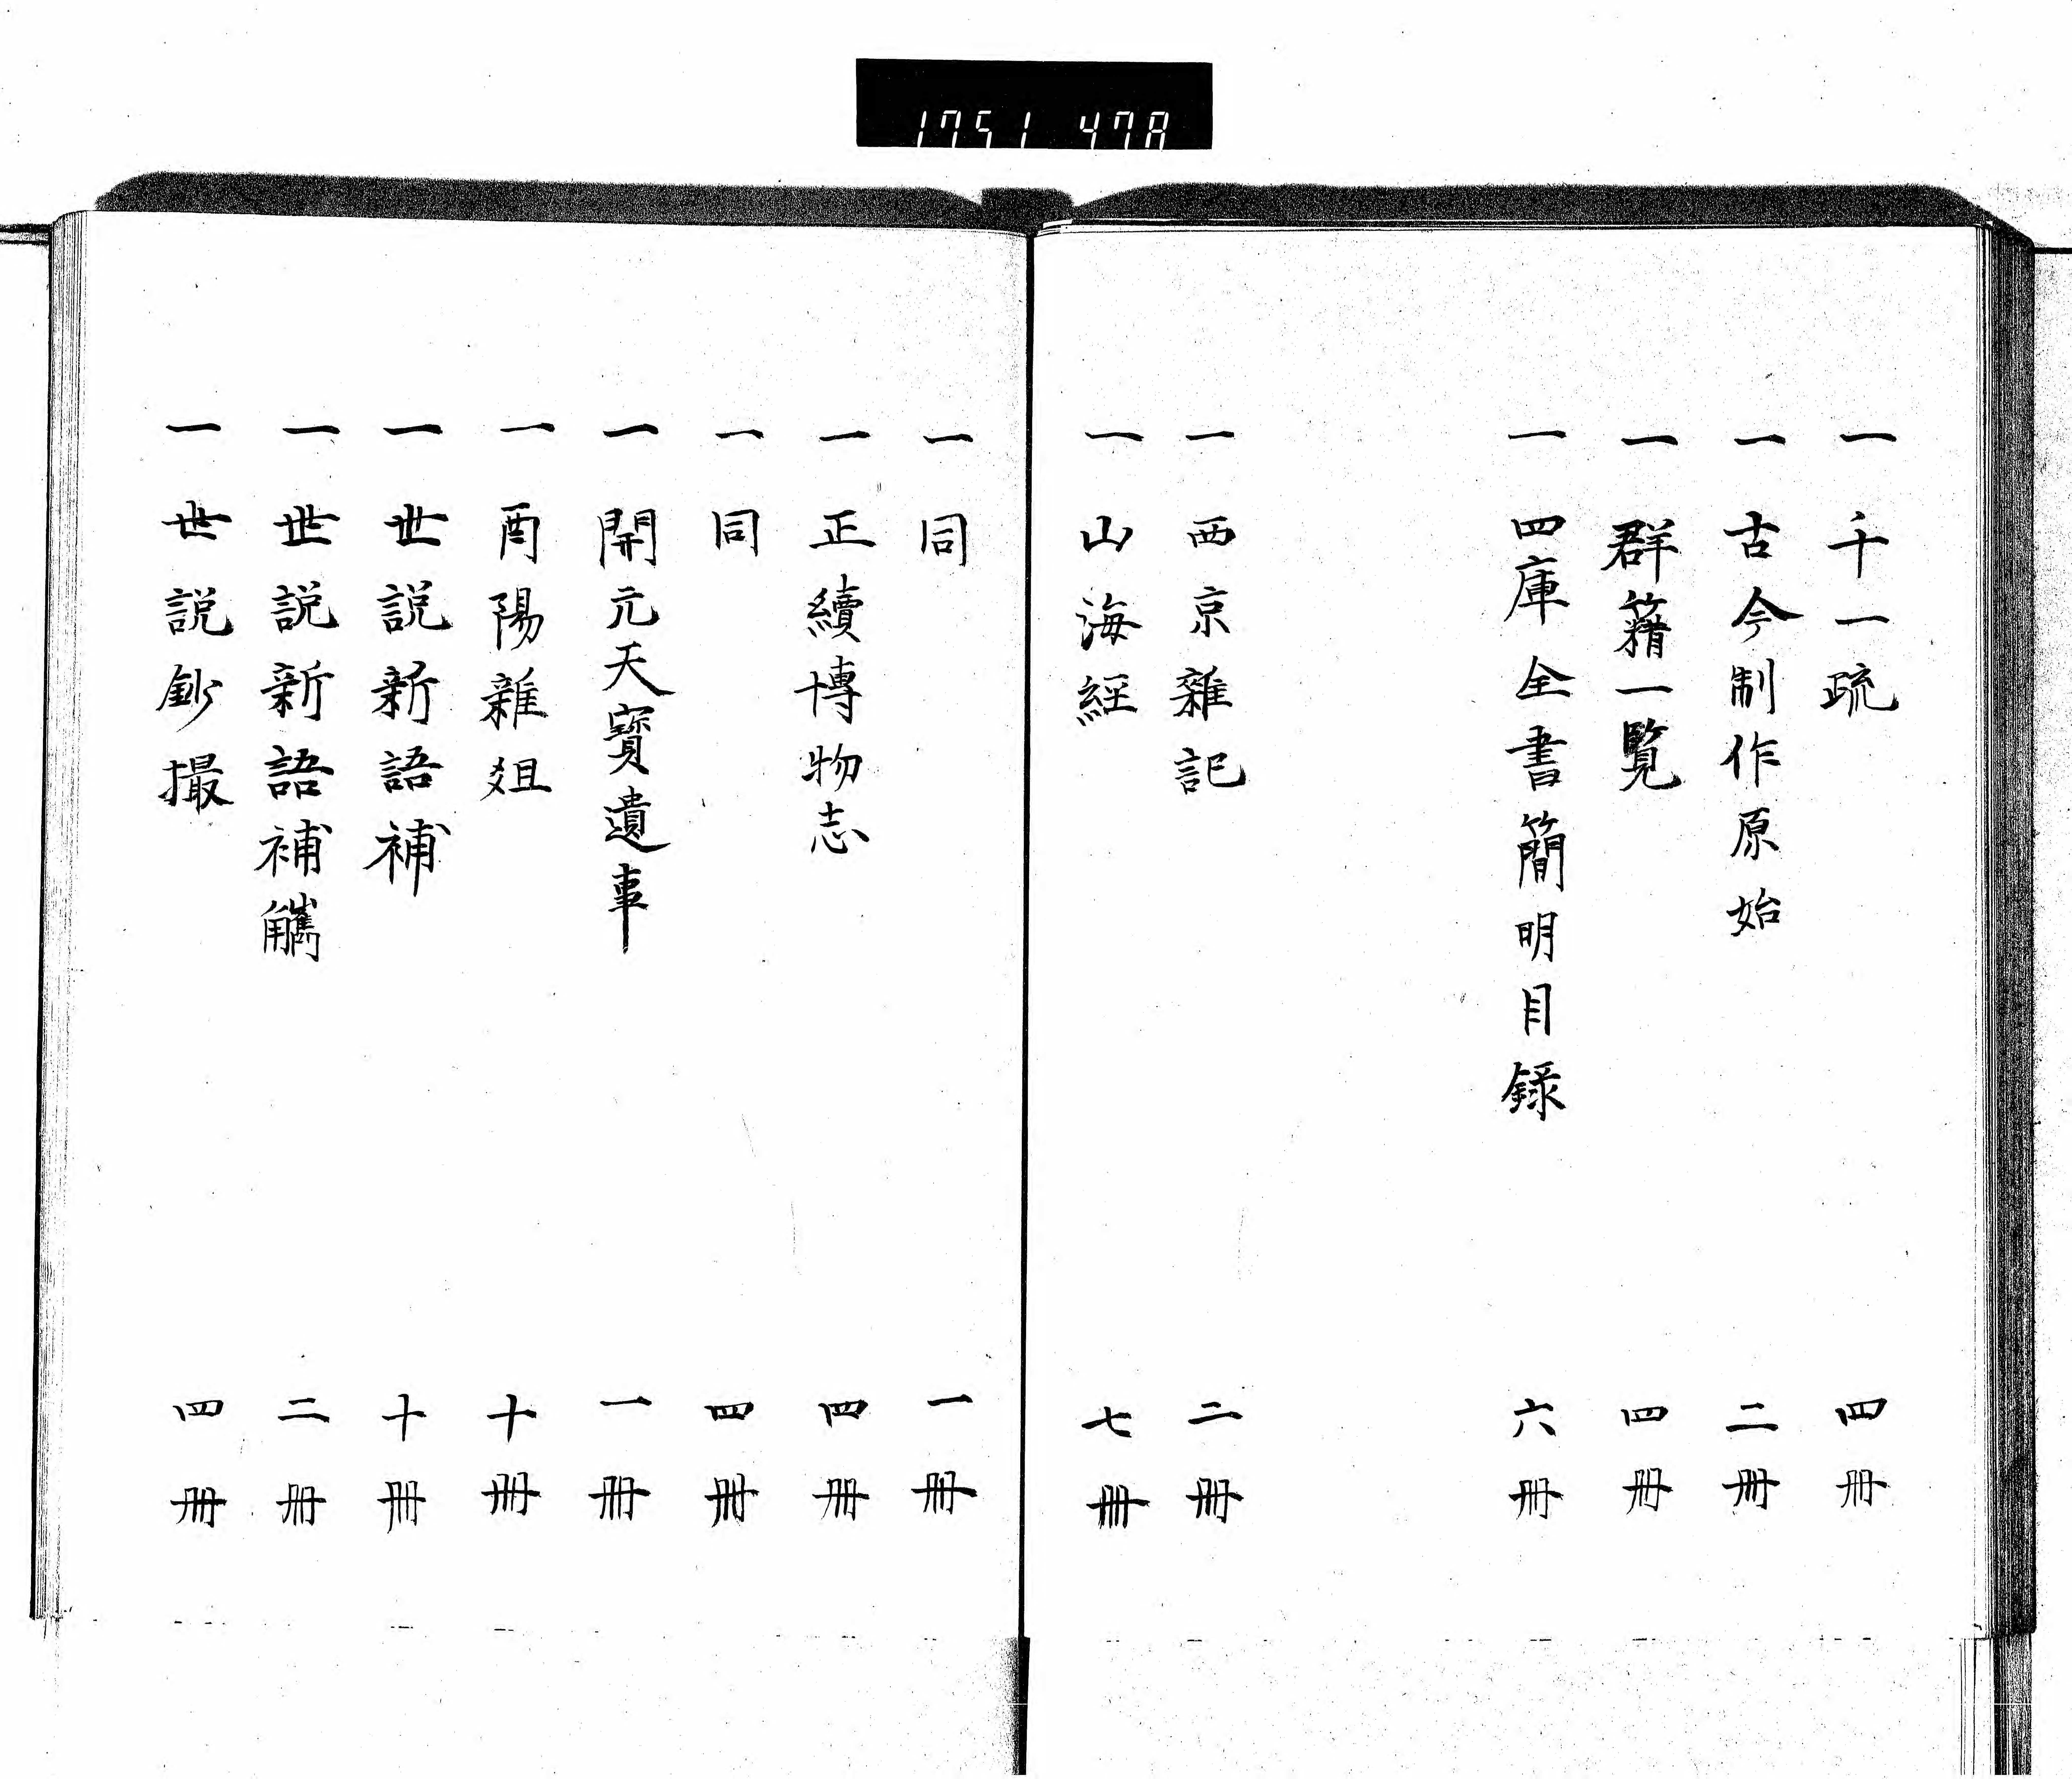 1751 478
一 千一疏 四冊
一 古今制作原始 二冊
一 群籍一覧 四冊
一 四庫全書簡明目録 六冊
一 西京雜記 二冊
一 山海経 七冊
一 同 一冊
一 正續博物志 四冊
一 同 四冊
一 開元天寳遺事 一冊
一 酉陽雜爼 十冊
一 世説新語補 十冊
一 世説新語補觿 二冊
一 世説鈔撮 四冊